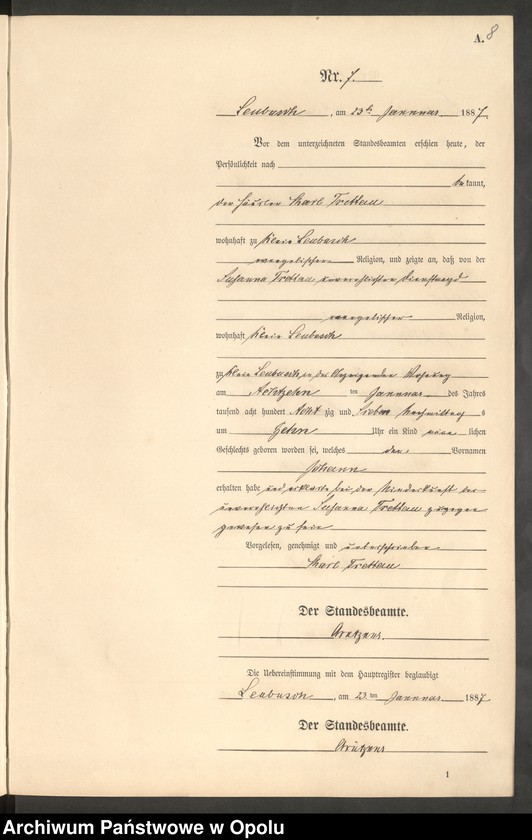 A. 8
Nr. 7.
Leubusch, am 23ten Januar 1887.
Vor dem unterzeichneten Standesbeamten erschien heute, der
Persönlichkeit nach
bekannt,
der Häusler Karl Trettau
wohnhaft zu Klein Leubusch
evangelischer Religion, und zeigte an, daß von der
Susanna Trettau unverehlichten Dienstmagd
evangelischer Religion,
wohnhaft Klein Leubusch
zu Klein Leubusch in des Anzeigenden Wohnung
am Achtzehn ten Januar des Jahres
tausend acht hundert Acht zig und Sieben Nachmittag s
um Zehn Uhr ein Kind männlichen
Geschlechts geboren worden sei, welches den Vornamen
Johann
erhalten habe und erklärte bei der Niederkunft der
unverehlichten Susanna Trettau zugegen
gewesen zu sein
Vorgelesen, genehmigt und unterschrieben
Karl Trettau
Der Standesbeamte.
Die Uebereinstimmung mit dem Hauptregister beglaubigt
Leubusch, am 23ten Januar 1887
Der Standesbeamte.
1
Archiwum Państwowe w Opolu